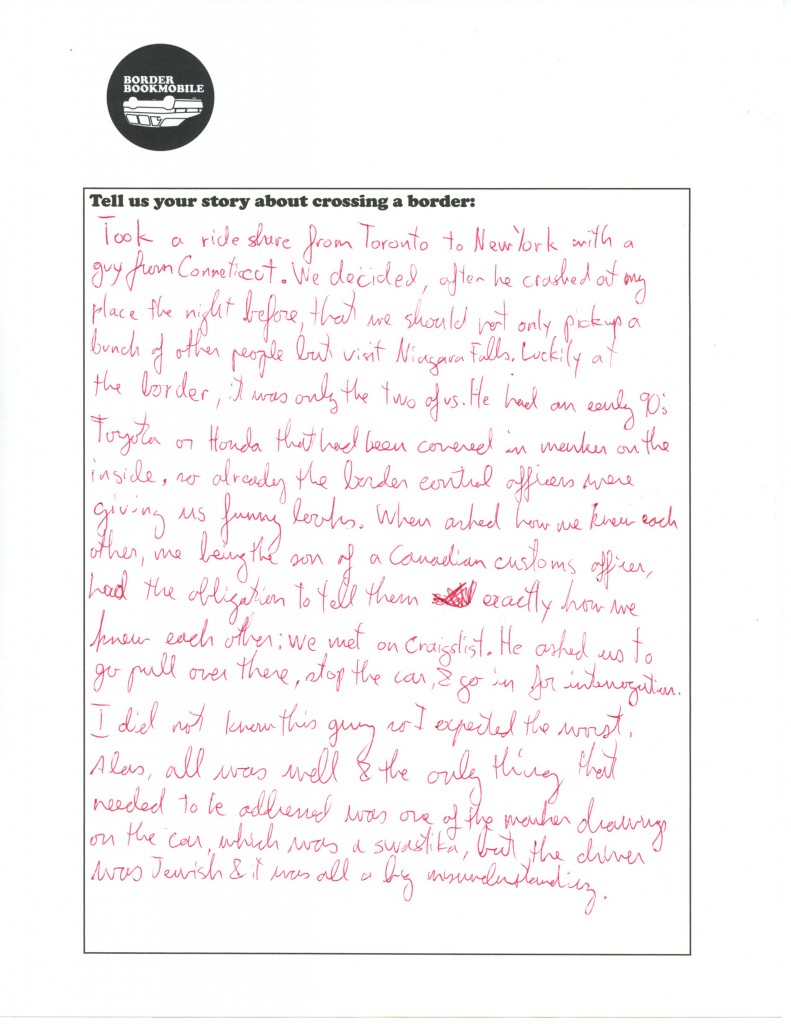 BORDER
BOOKMOBILE
Tell us your story about crossing a border:
Took a ride share from Toronto to New York with a
guy from Conneticut. We decided, after he crashed at my
place the night before, that we should not only pick up a
bunch of other people but visit Niagara Falls. Luckily at
the border, it was only the two of us. He had an early 90's
Toyota or Honda that had been covered in marker on the
inside, so already the border control officers were
giving us funny looks. When asked how we knew each
other, me being the son of a Canadian customs officer,
had the obligation to tell them exactly how we
knew each other: we met on Craigslist. He asked us to
go pull over there, stop the car, & go in for interrogation.
I did not know this guy so I expected the worst.
Alas, all was well & the only thing that
needed to be addressed was one of the marker drawings
on the car, which was a swastika, but the driver
was Jewish & it was all a big misunderstanding.